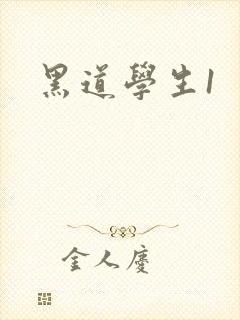 黑道學生1
金人慶